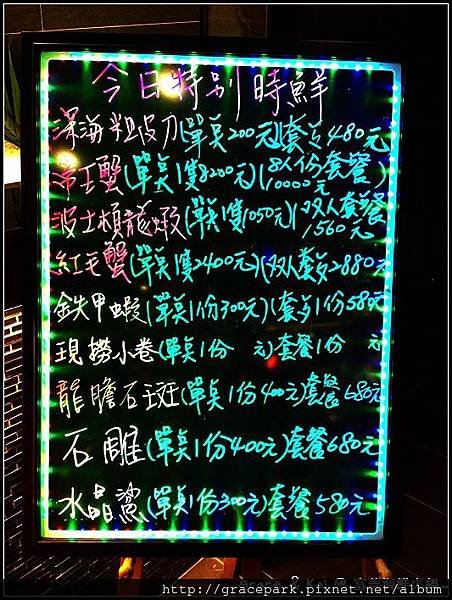 今日特別時鮮
深海粗皮刀(單点200元)(套点480元
帝王蟹(單点1隻8200元)(8人份套餐10000元)
波士頓龍蝦(單点1隻1050元)(双人套餐1560元
紅毛蟹(單点1隻2400元)(双人套餐2880元
鉄甲蝦(單点1份300元)(套点1份580元
現撈小卷(單点1份 元)套餐1份 元
龍膽石斑(單点1份400元)套餐680元
石雕(單点1份400元)套餐680元
水晶鯊(單点1份300元)套餐580元
http://gracepark.pixnet.net/album